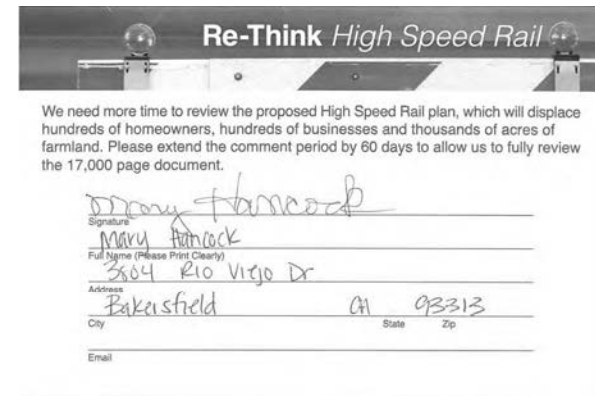 Re-Think High Speed Rail
We need more time to review the proposed High Speed Rail plan, which will displace
hundreds of homeowners, hundreds of businesses and thousands of acres of
farmland. Please extend the comment period by 60 days to allow us to fully review
the 17,000 page document.
Mary Hancock
Signature
Mary Hancock
Full Name (Please Print Clearly)
3804 Rio Viejo Dr
Address
Bakersfield CA 93313
City State Zip
Email